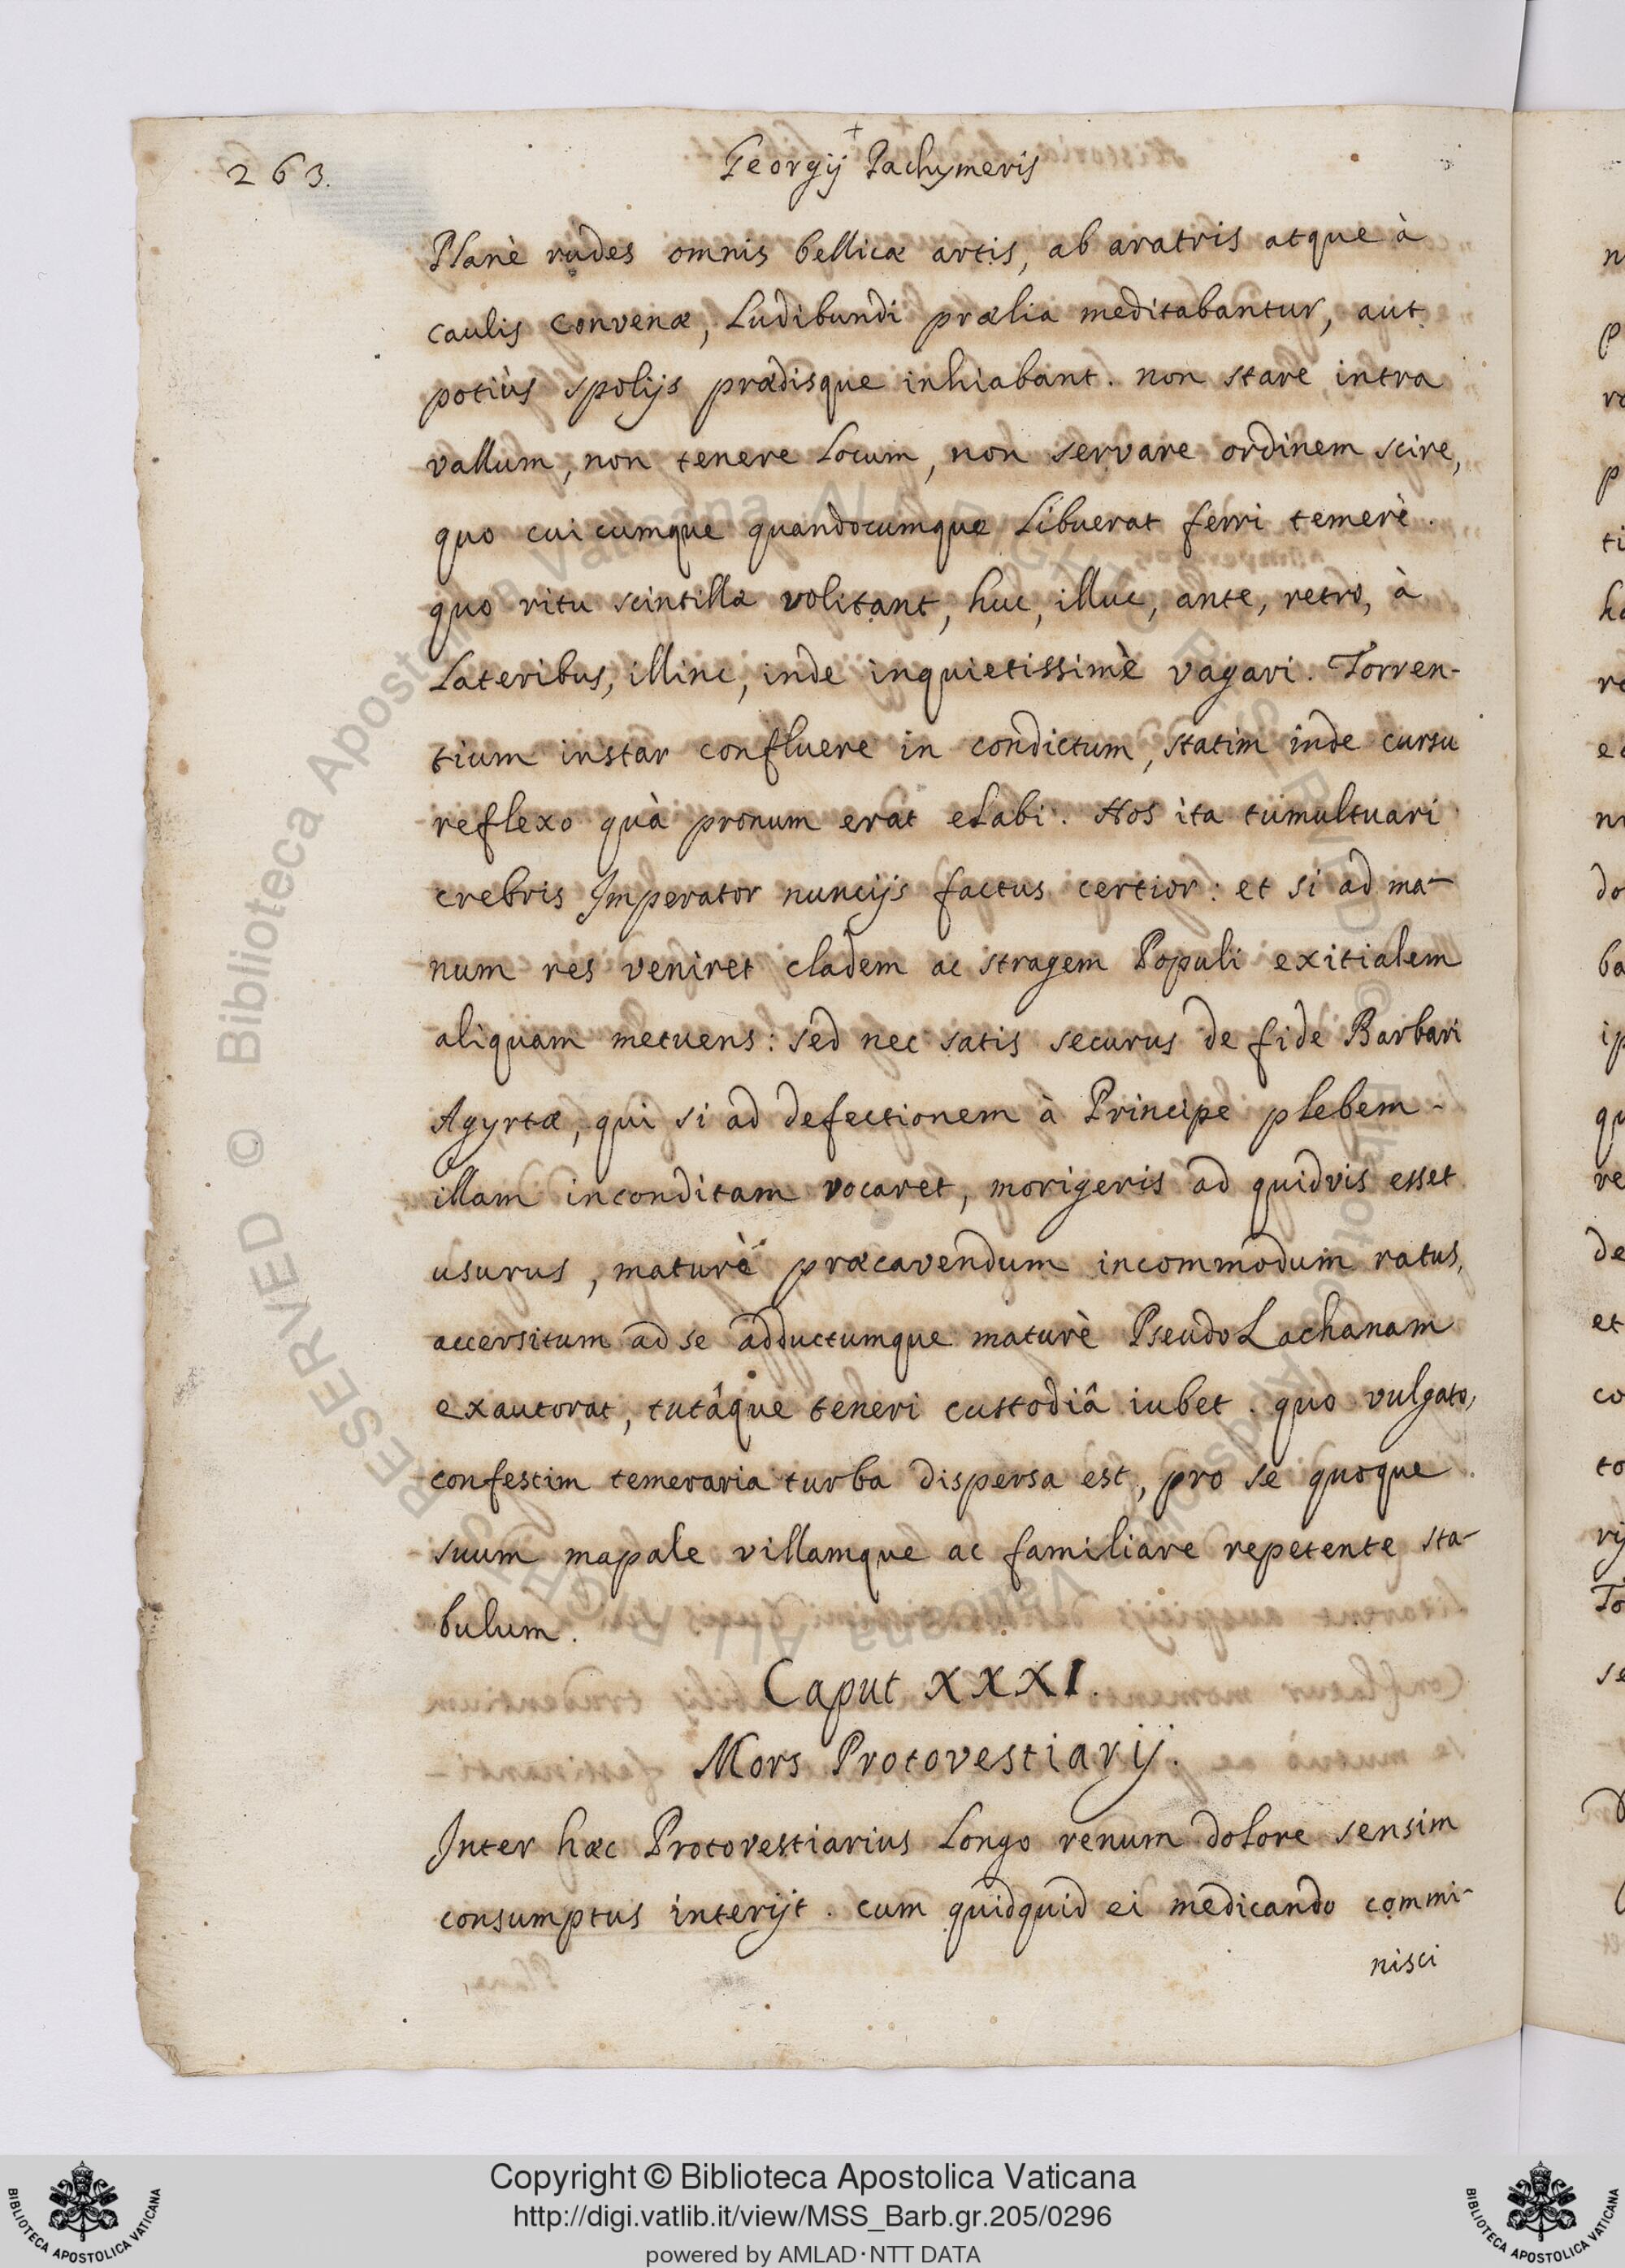 263.
Georgij Pachymeris
Planè rudes omnis bellicæ artis, ab aratris atque à
caulis convenæ, Ludibundi prælia meditabantur, aut
potiùs spolijs prædisque inhiabant. non stare intra
vallum, non tenere Locum, non servare ordinem scire,
quo cuicumque quandocumque Libuerat ferri temerè.
quo ritu scintillæ volitant, huc, illuc, ante, retro, à
Lateribus, illinc, inde inquietissimè vagari. Torren-
tium instar confluere in condictum, statim inde cursu
reflexo quà pronum erat elabi. Hos ita tumultuari
crebris Imperator nuncijs factus certior: et si ad ma-
num res veniret cladem ac stragem Populi exitialem
aliquam metuens: sed nec satis securus de fide Barbari
Agyrtæ, qui si ad defectionem à Principe plebem
illam inconditam vocaret, morigeris ad quidvis esset
usurus, maturè præcavendum incommodum ratus,
accersitum ad se adductumque maturè PseudoLachanam
exautorat, tutâque teneri custodiâ iubet. quo vulgato,
confestim temeraria turba dispersa est, pro se quoque
suum mapale villamque ac familiare repetente sta-
bulum.
Caput XXXI.
Mors Protovestiarij.
Inter hæc Protovestiarius Longo renum dolore sensim
consumptus interijt. cum quidquid ei medicando commi-
nisci
Copyright © Biblioteca Apostolica Vaticana
http://digi.vatlib.it/view/MSS_Barb.gr.205/0296
powered by AMLAD·NTT DATA
BIBLIOTECA APOSTOLICA VATICANA
BIBLIOTECA APOSTOLICA VATICANA